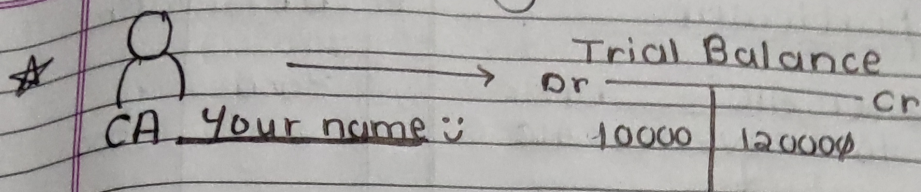 Trial Balance
Dr Cr
CA Your name
10000 12000